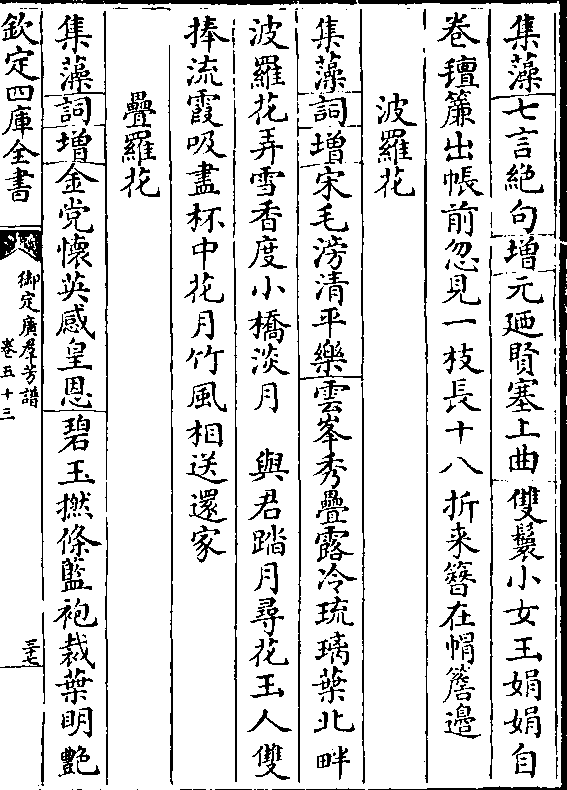 集藻七言絶句増元廼賢塞上曲雙鬟小女玉娟娟自
卷氊簾出帳前忽見一枝長十八折来簪在帽簷邊
波羅花
集藻詞増宋毛滂清平樂雲峯秀疊露冷琉璃葉北畔
波羅花弄雪香度小橋淡月 與君踏月尋花玉人雙
捧流霞吸盡杯中花月竹風相送還家
疊羅花
集藻詞増金党懐英感皇恩碧玉撚條藍袍裁葉明艶
欽定四庫全書
御定廣羣芳譜
卷五十三
三七